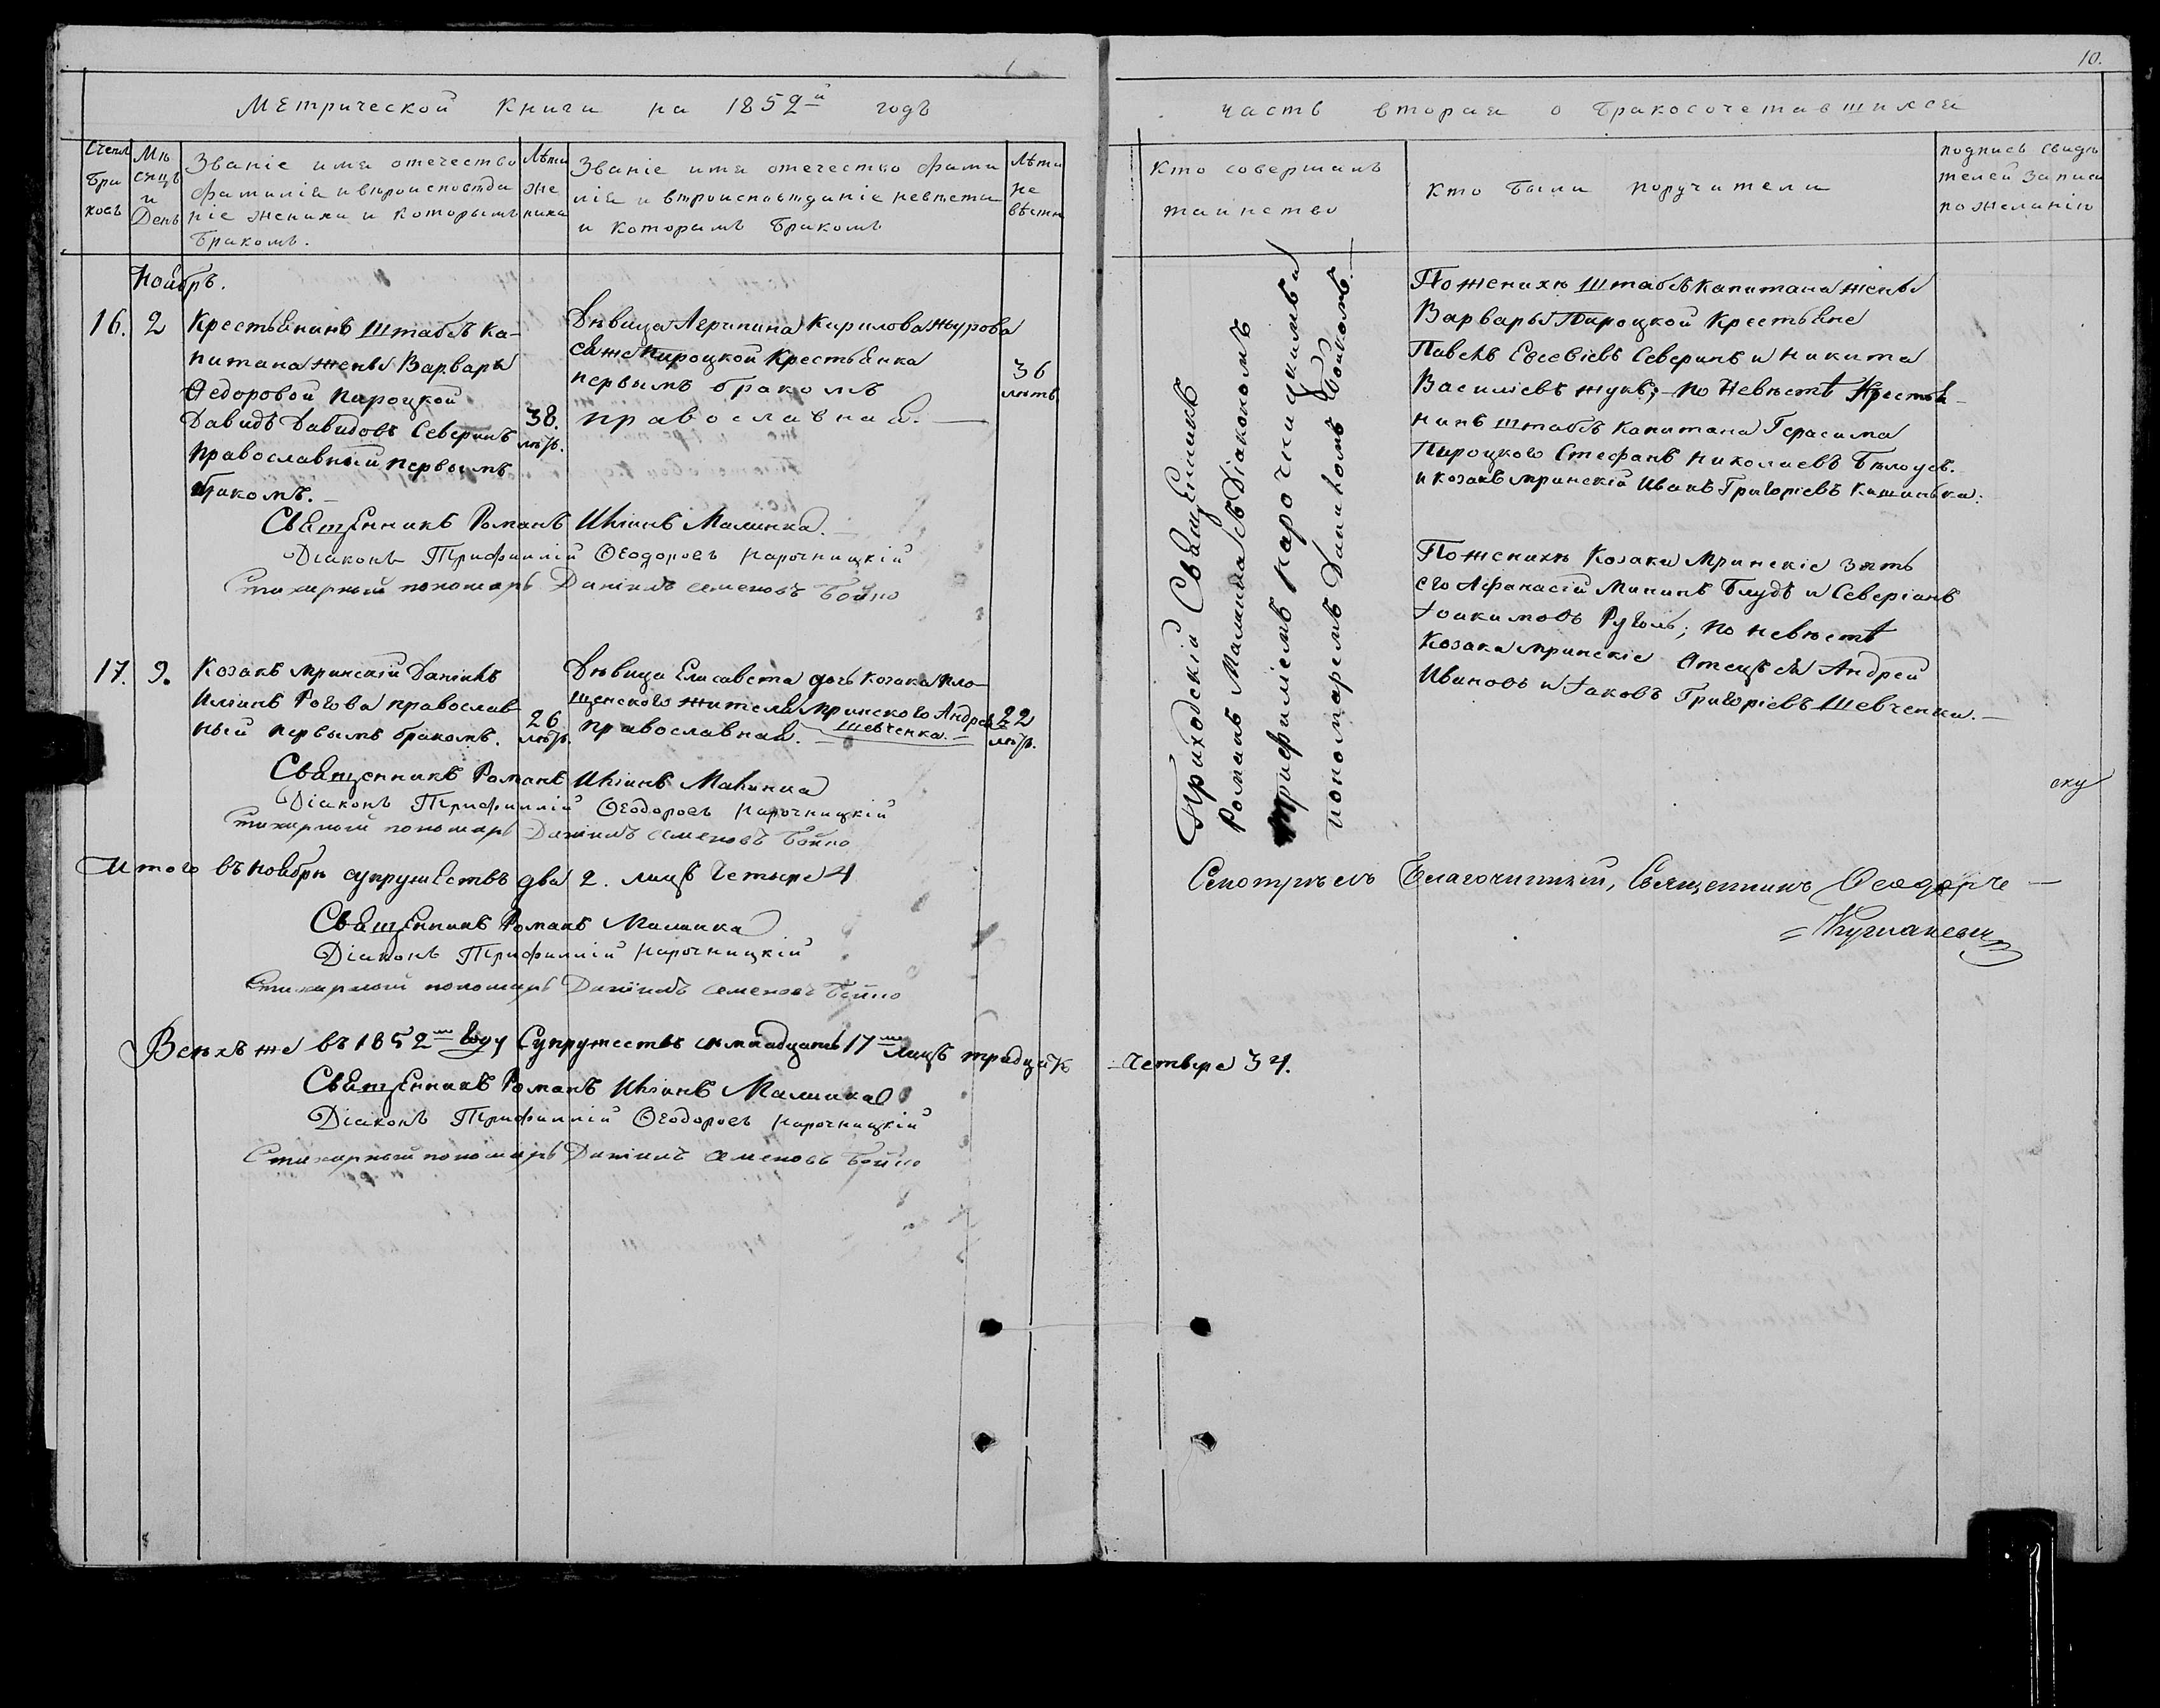 10.
Метрической книги на 1852й годъ
часть вторая о бракосочетавшихся
Счетъ браковъ
Мѣсяцъ и День
Званіе имя отечество
фамилія и вѣроисповѣда
ніе жениха и которымъ
бракомъ.
Лѣта жениха
Званіе имя отечество фами
лія и вѣроисповѣданіе невѣсты
и которымъ бракомъ
Лѣта невѣсты
Кто совершалъ
таинство
Кто были поручители
подпись свидѣ
телей записи
по желанію
Ноябрь.
16. 2
Крестьянинъ Штабсъ Ка-
питана жены Варвары
Ѳедоровой Пироцкой
Давидъ Давидовъ Северинъ
православный первымъ
бракомъ.
38. лѣтъ.
Дѣвица Агрипина Кирилова
Пироцкой Крестьянка
первымъ бракомъ
православная.
36 лѣтъ
Священникъ Романъ Иліинъ Малинка.
Діаконъ Трифиллій Ѳеодоровъ Нарочницкій
Стихарный пономарь Даніилъ Семеновъ Бойко
17. 9.
Козакъ мринскій Даніилъ
Иліинъ Рогова православ
ный первымъ бракомъ.
26 лѣтъ.
Дѣвица Елисавета дочь Козака
жителя мринского Андрея
Шевченка.
православная.
22 лѣтъ.
Священникъ Романъ Иліинъ Малинка
Діаконъ Трифиллій Ѳеодоровъ Нарочницкій
Стихарный пономарь Даніилъ Семеновъ Бойко
Итого въ ноябрѣ супружествъ два 2. лицъ Четыре 4
Священникъ Романъ Малинка
Діаконъ Трифиллій Нарочницкій
Стихарный пономарь Даніилъ Семеновъ Бойко
Всѣхъ же въ 1852мъ году Супружествъ семнадцать 17 лицъ тридцать
Четыре 34.
Священникъ Романъ Иліинъ Малинка
Діаконъ Трифиллій Ѳеодоровъ Нарочницкій
Стихарный пономарь Даніилъ Семеновъ Бойко
Приходскій Священникъ
Романъ Малинка съ Діакономъ
Трифиліемъ Нарочницкимъ и
пономаремъ Даниломъ Бойкомъ.
По женихѣ Штабсъ Капитана жены
Варвары Пироцкой Крестьяне
Павелъ Евсевіевъ Северинъ и Никита
Василіевъ Жукъ; по Невѣстѣ Крестья-
нинъ Штабсъ Капитана Герасима
Пироцкого Стефанъ Николаевъ Бѣлоусъ.
и козакъ мринскій Иванъ Григоріевъ
По женихѣ Козаки Мринскіе зять
его Афанасій Мининъ Блудъ и Северіанъ
Іоакимовъ по невѣстѣ
Козака мринскіе Отецъ ея Андрей
Ивановъ и Іаковъ Григоріевъ Шевченки.
Смотрѣлъ Благочинный, Священникъ